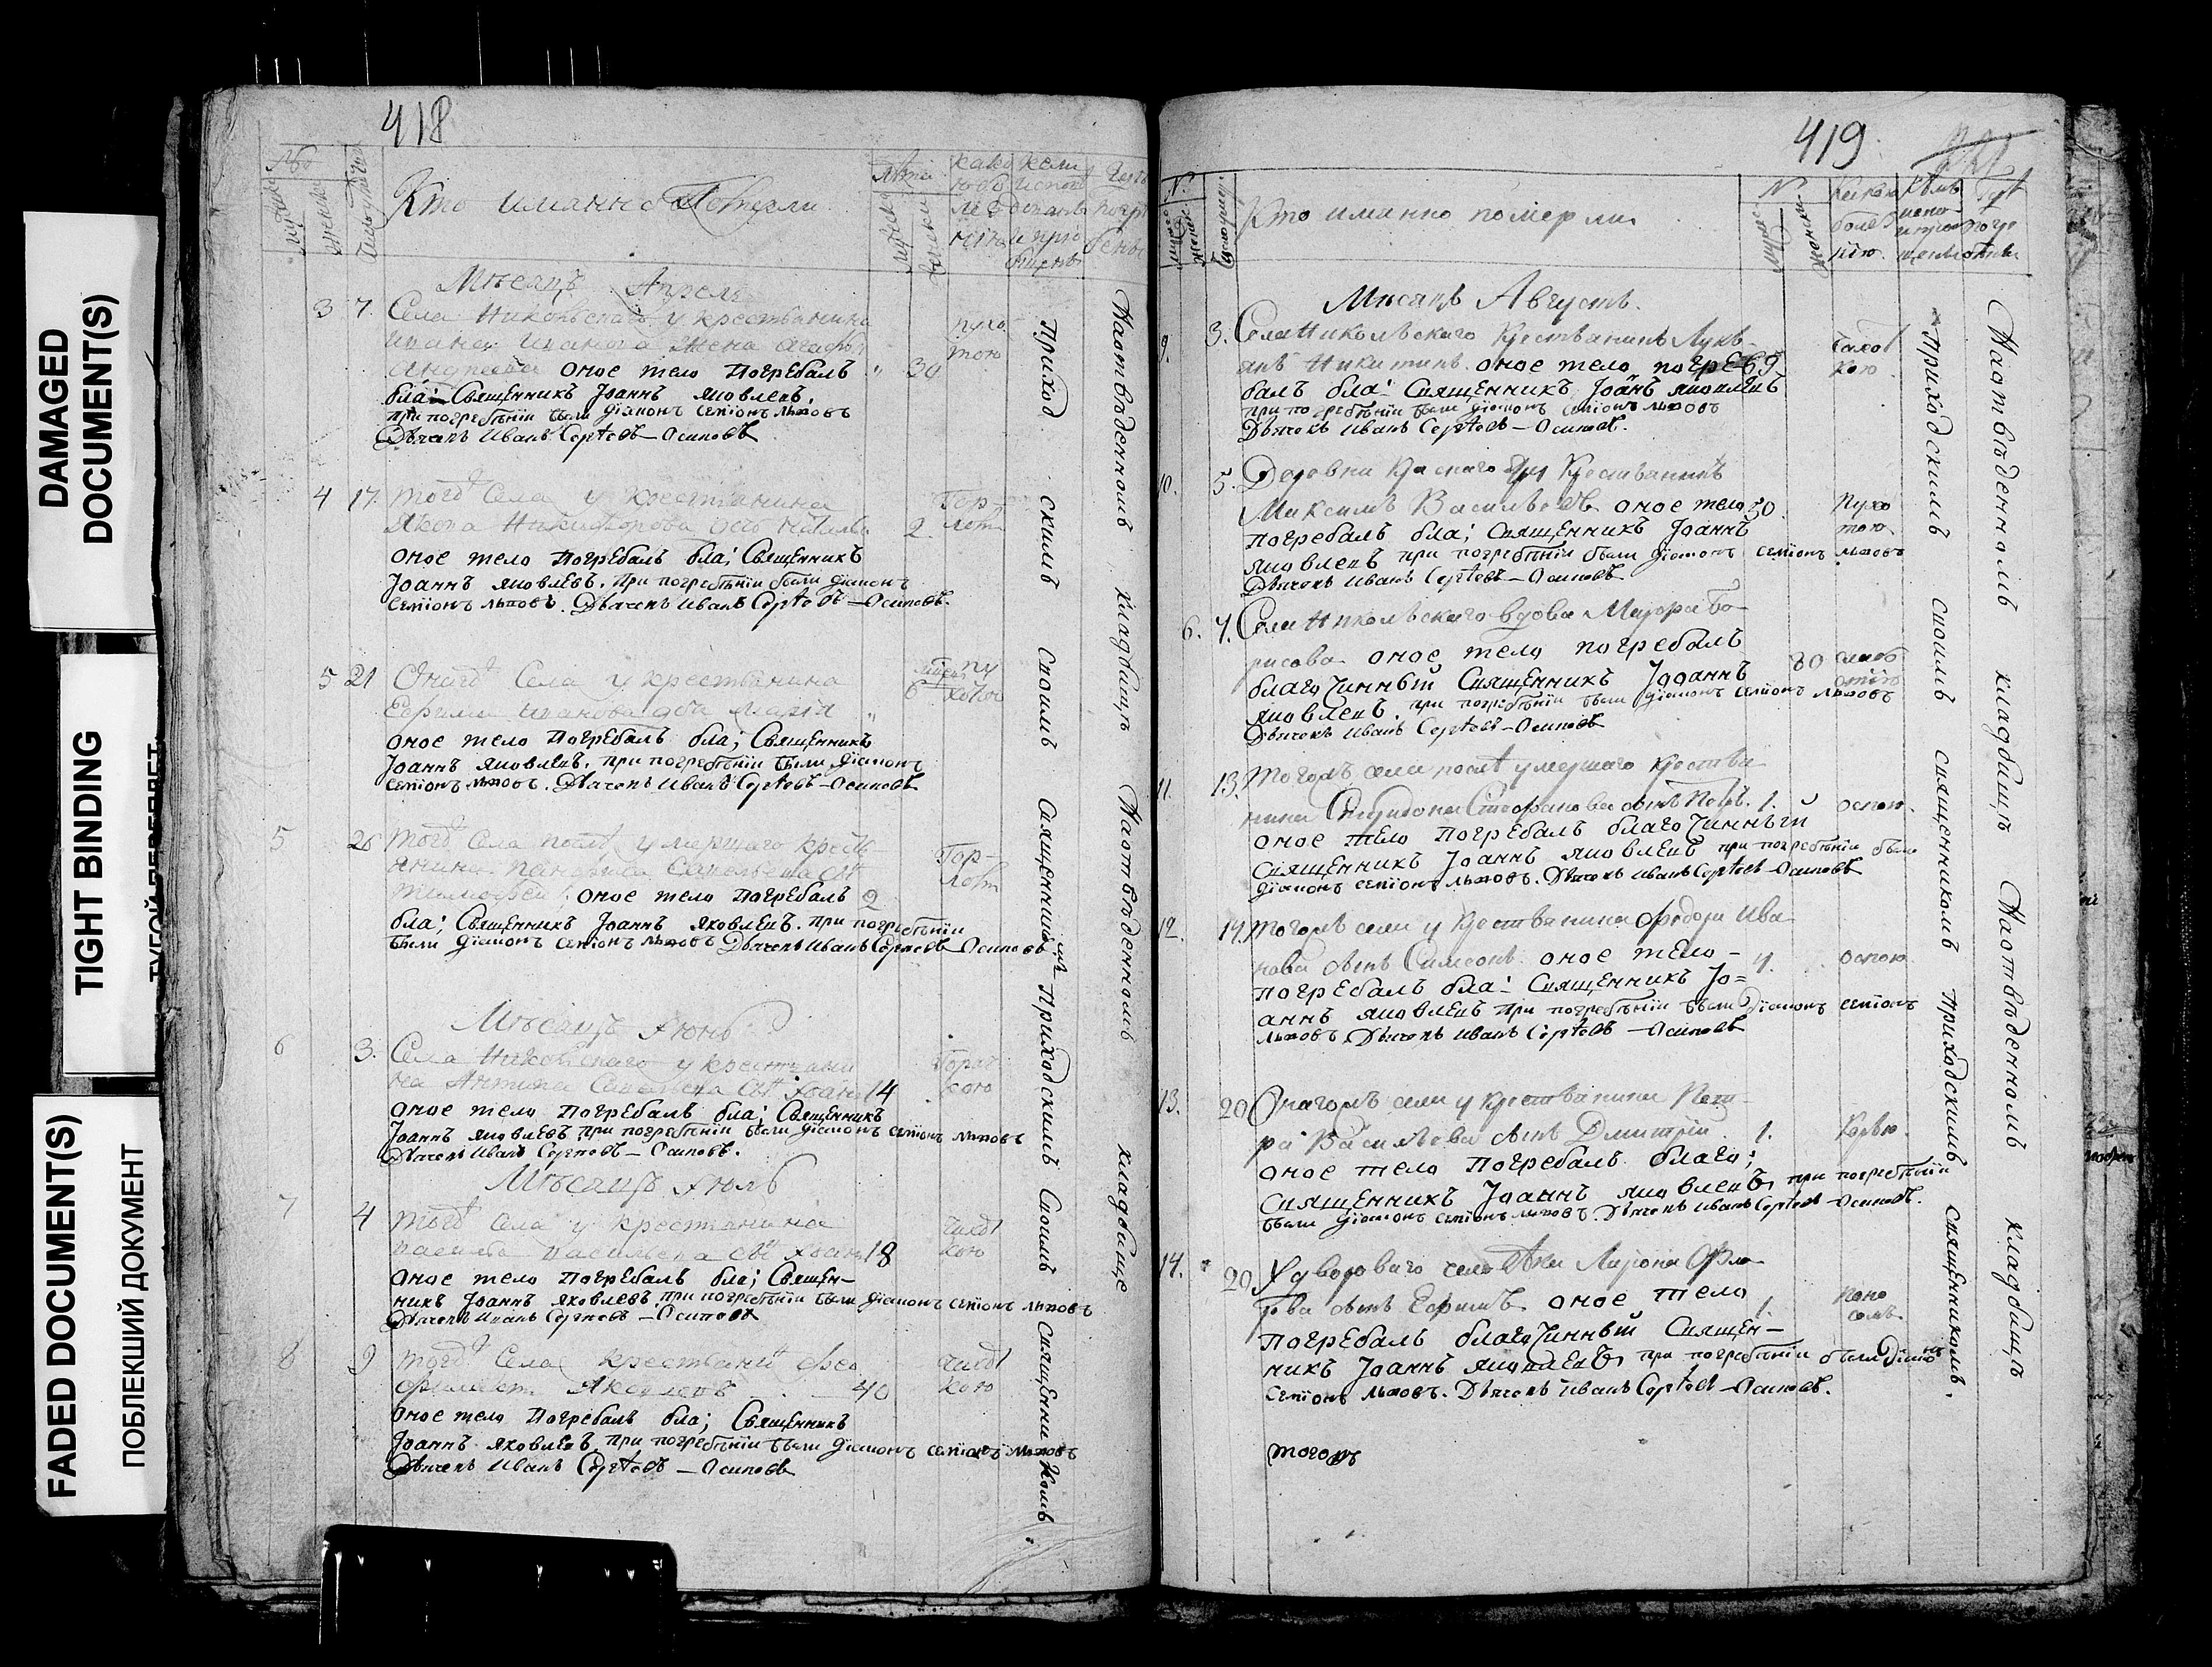 DAMAGED
DOCUMENT(S)
TIGHT BINDING
ТУГОЙ ПЕРЕПЛЕТ
FADED DOCUMENT(S)
ПОБЛЕКШИЙ ДОКУМЕНТ
418
Кто иманно Померли
Мѣсяцъ Апрель
3 7. Села Никольскаго у крестьянина
Ивана Иванова жена Агафья
Андреева оное тело Погребалъ 30
бла: Священникъ Іоаннъ Яковлевъ.
при погребѣніи были Діаконъ Семіонъ Львовъ
Дьячекъ Иванъ Сергѣевъ — Осиповъ
пухотою
4 17. Тогожъ Села у крестьянина
Якова Никифорова 2.
оное тело Погребалъ бла; Священникъ
Іоаннъ Яковлевъ. При погребѣніи были Діаконъ
Семіонъ Львовъ. Дьячекъ Иванъ Сергѣевъ — Осиповъ.
5 21 Онагожъ Села у крестьянина
Ефима Иванова дочь Марія
оное тело Погребалъ бла; Священникъ
Іоаннъ Яковлевъ. При погребѣніи были Діаконъ
Семіонъ Львовъ. Дьячекъ Иванъ Сергѣевъ — Осиповъ
5 26 Тогожъ Села послѣ умершаго кресть
янина Савельева сынъ
Тимофей; оное тело Погребалъ 2
бла; Священникъ Іоаннъ Яковлевъ. При погребѣніи
были Діаконъ Семіонъ Львовъ Дьячекъ Иванъ Сергѣевъ Осиповъ
Мѣсяцъ Іюнь
6 3. Села Никольскаго у крестьяни
на Антипа Савельева сынъ Іоаннъ 14
оное тело Погребалъ бла; Священникъ
Іоаннъ Яковлевъ при погребѣніи были Діаконъ Семіонъ Львовъ
Дьячекъ Иванъ Сергѣевъ — Осиповъ.
Мѣсяцъ Іюль
7 4 Тогожъ Села у крестьянина
Василья Васильева сынъ Іоаннъ 18
оное тело Погребалъ бла; Священ—
никъ Іоаннъ Яковлевъ. При погребѣніи были Діаконъ Семіонъ Львовъ
Дьячекъ Иванъ Сергѣевъ — Осиповъ
8 9 Тогожъ Села крестьянинъ Фео
филактъ 40
оное тело Погребалъ бла; Священникъ
Іоаннъ Яковлевъ. При погребѣніи были Діаконъ Семіонъ Львовъ
Дьячекъ Иванъ Сергѣевъ — Осиповъ
Приходскимъ Своимъ Священникомъ Приходскимъ Своимъ Священникомъ
На отвѣденномъ кладбищѣ На отвѣденномъ кладбище
419.
Кто иманно померли
Мѣсяцъ Августъ.
9. 3. Села Никольскаго Крестьянинъ Лукь-
янъ Никитинъ. оное тело погре 69
балъ бла: Священникъ Іоаннъ Яковлевъ
при погребѣніи были Діаконъ Семіонъ Львовъ
Дьячекъ Иванъ Сергѣевъ — Осиповъ.
10. 5. Деревни Краснаго Яру Крестьянинъ
Максимъ Васильевъ оное тело 50.
погребалъ бла; Священникъ Іоаннъ
Яковлевъ при погребѣніи были Діаконъ Семіонъ Львовъ
Дьячекъ Иванъ Сергѣевъ — Осиповъ
Пухо
тою
6. 7. Села Никольскаго вдова Марфа Бо-
рисова оное тело погребалъ
благочинный Священникъ Іоаннъ 80
Яковлевъ. при погребѣніи были Діаконъ Семіонъ Львовъ
Дьячекъ Иванъ Сергѣевъ — Осиповъ
11. 13. Тогожъ села послѣ умершаго Крестья-
нина Спиридона Стефанова сынъ Петръ. 1. оспою.
оное тело Погребалъ благочинный
Священникъ Іоаннъ Яковлевъ при погребѣніи были
Діаконъ Семіонъ Львовъ. Дьячекъ Иванъ Сергѣевъ — Осиповъ
12. 14. Тогожъ села у Крестьянина Федора Ива-
нова сынъ Симеонъ оное тело — 4. оспою
погребалъ бла: Священникъ Іо=
аннъ Яковлевъ При погребѣніи были Діаконъ Семіонъ
Львовъ. Дьячекъ Иванъ Сергѣевъ — Осиповъ
13. 20 Онагожъ села у Крестьянина Пет-
ра Васильева сынъ Дмитрій. 1. Корью.
оное тело Погребалъ благо;
Священникъ Іоаннъ Яковлевъ, при погребѣніи
были Діаконъ Семіонъ Львовъ. Дьячекъ Иванъ Сергѣевъ — Осиповъ.
14. 20. У двороваго человѣка Лариона Фло-
рова сынъ Ефимъ оное тело 1. Поно
сомъ
погребалъ благочинный Священ—
никъ Іоаннъ Яковлевъ, при погребѣніи были Діаконъ
Семіонъ Львовъ. Дьячекъ Иванъ Сергѣевъ — Осиповъ.
тогожъ
Приходскимъ Своимъ Священникомъ Приходскимъ Священникомъ.
На отвѣденномъ кладбищѣ На отвѣденномъ кладбищѣ